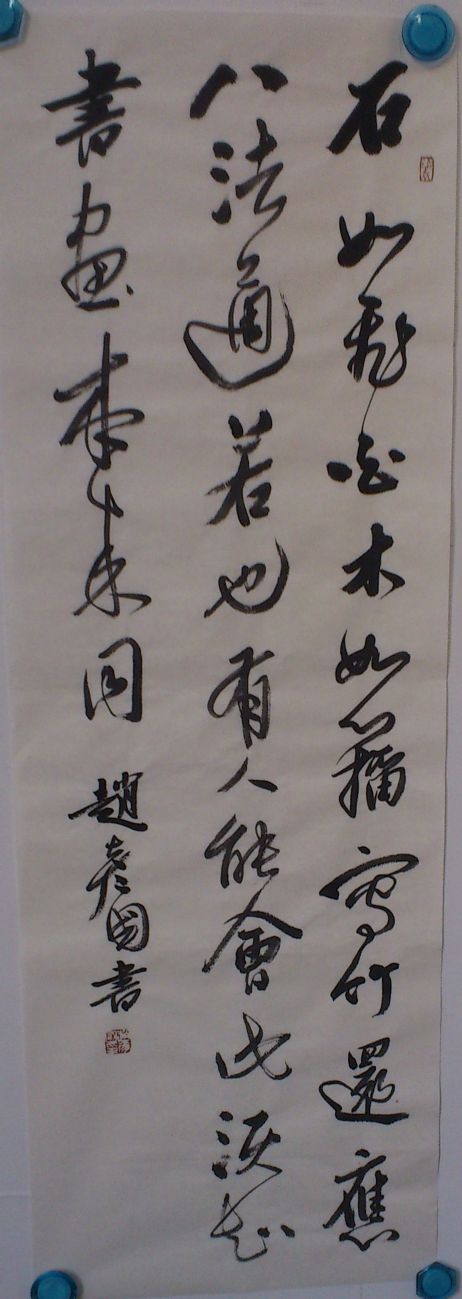 石如飛白木如籀寫竹還應
八法通若也有人能會此須知
書畫本來同
趙彥國書